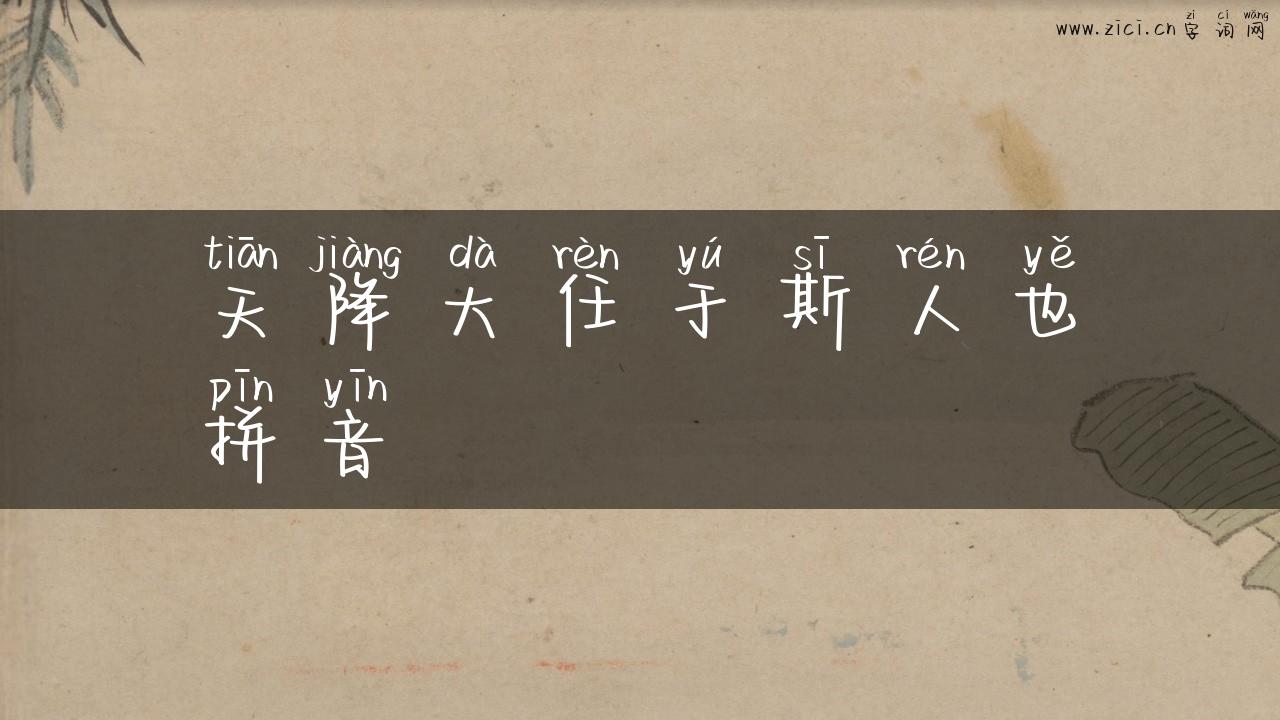 zì cí wǎng
www.zici.cn 字词网
tiān jiàng dà rèn yú sī rén yě
天降大任于斯人也
pīn yīn
拼音